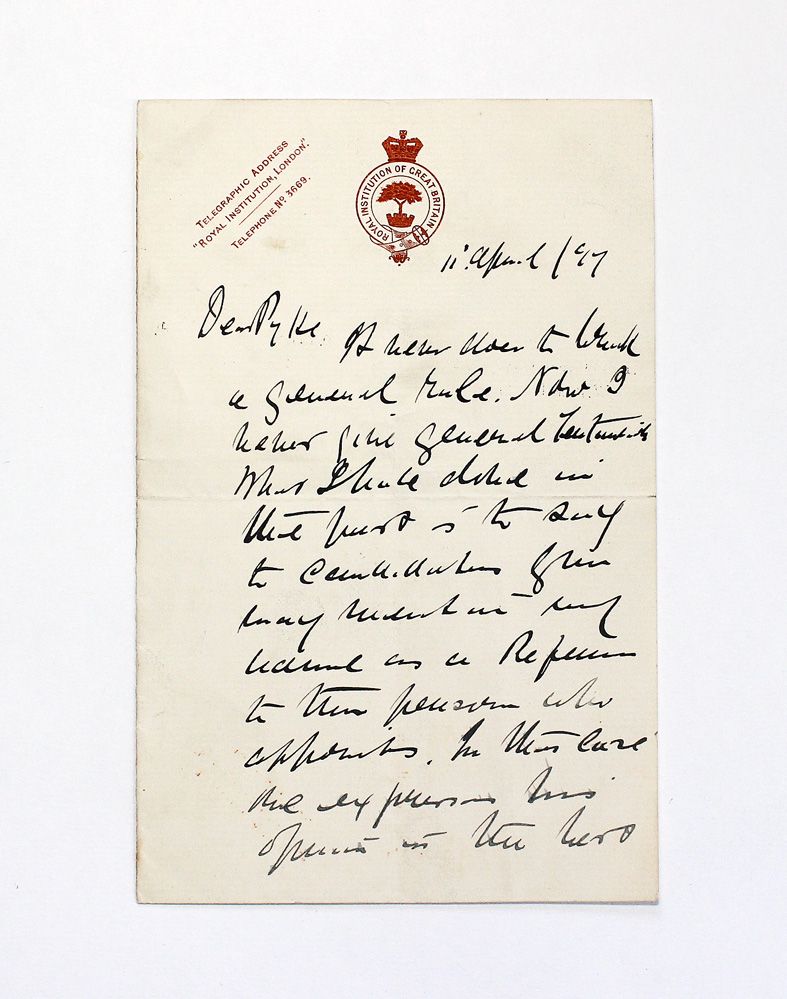 TELEGRAPHIC ADDRESS
"ROYAL INSTITUTION, LONDON."
TELEPHONE Nº 3669.
ROYAL INSTITUTION OF GREAT BRITAIN
11. April /97
Dear Pyke
It never does to break
a general rule. Now I
never give general testimonials
What I have done in
the past is to say
to candidates you
may mention my
name as a Referee
to the person who
appoints. In that case
one expresses his
opinion in the best